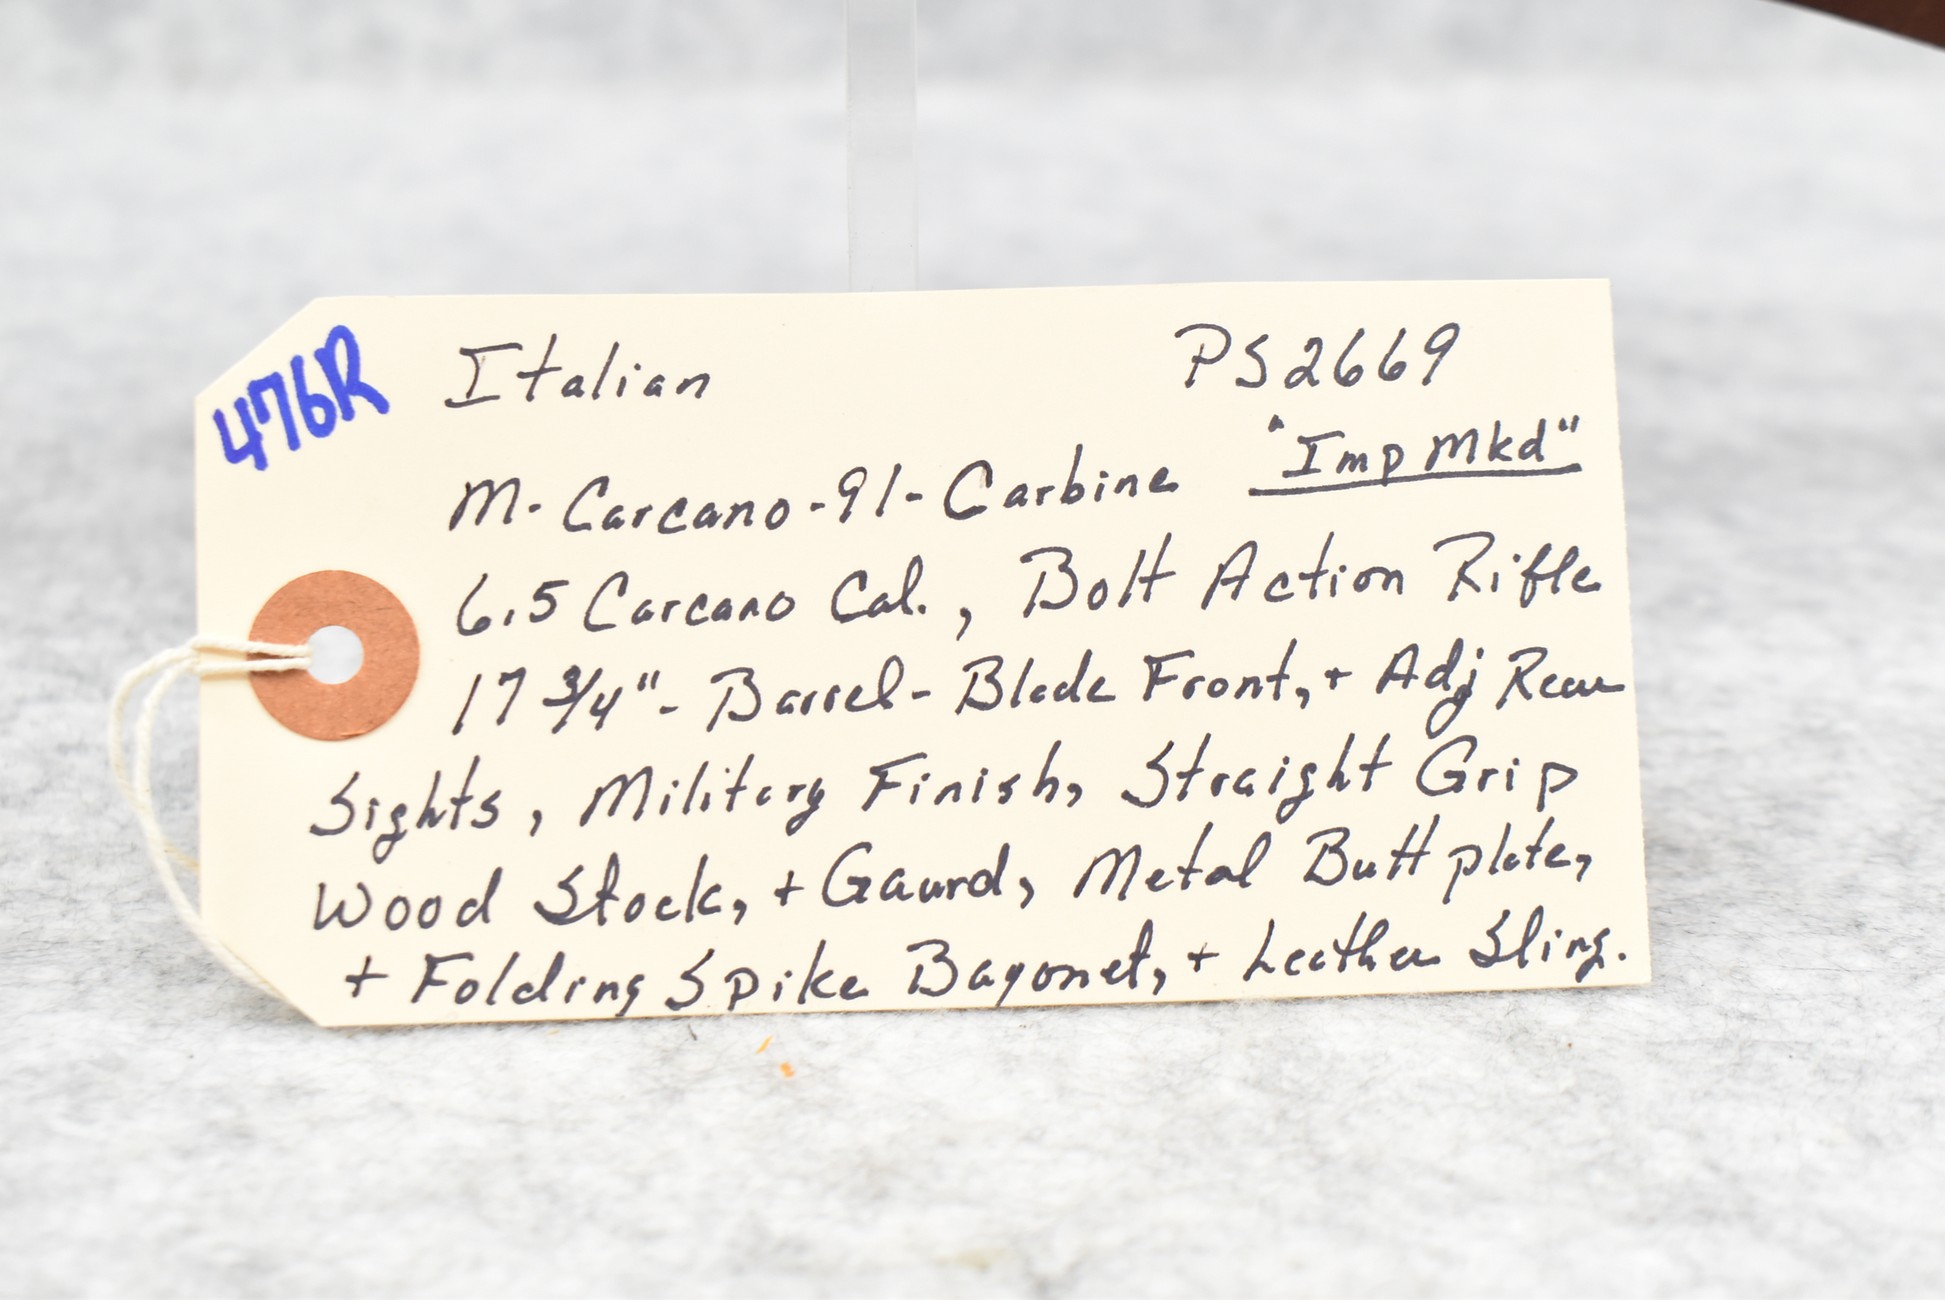 476R
Italian PS2669
M. Carcano-91-Carbine "Imp Mkd"
6.5 Carcano Cal., Bolt Action Rifle
17 3/4"- Barrel- Blade Front, + Adj Rear
Sights, Military Finish, Straight Grip
Wood Stock, + Gaurd, Metal Butt plate,
+ Folding Spike Bayonet, + Leather Sling.